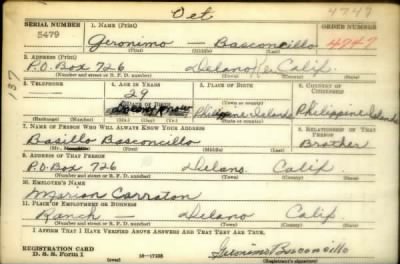 Det 4747
SERIAL NUMBER 1. NAME (Print) ORDER NUMBER
5479 Geronimo — Basconcillo 4747
2. ADDRESS (Print)
P.O. Box 726 Delano Calif.
(Number and street or R. F. D. number) (Town) (County) (State)
137
3. TELEPHONE 4. AGE IN YEARS 5. PLACE OF BIRTH 6. COUNTRY OF CITIZENSHIP
29
DATE OF BIRTH Philippine Islands Philippine Islands
(Exchange) (Number) (Mo.) (Day) (Yr.) (State or country)
7. NAME OF PERSON WHO WILL ALWAYS KNOW YOUR ADDRESS 8. RELATIONSHIP OF THAT PERSON
Basilio Basconcillo Brother
9. ADDRESS OF THAT PERSON
P.O. Box 726 Delano. Calif
(Number and street or R. F. D. number) (Town) (County) (State)
10. EMPLOYER'S NAME
Marion Carraton
11. PLACE OF EMPLOYMENT OR BUSINESS
Ranch — Delano Calif
(Number and street or R. F. D. number) (Town) (County) (State)
I AFFIRM THAT I HAVE VERIFIED ABOVE ANSWERS AND THAT THEY ARE TRUE.
REGISTRATION CARD Geronimo Basconcillo
D. S. S. Form 1 (over) 16-17105